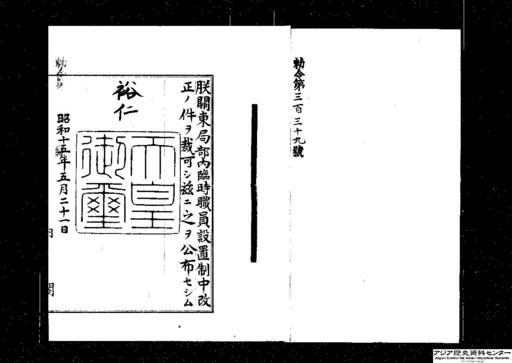 勅令第三百三十九號
朕關東局部內臨時職員設置制中改
正ノ件ヲ裁可シ茲ニ之ヲ公布セシム
裕仁
天皇
御璽
昭和十五年五月二十一日
アジア歴史資料センター
Japan Center for Asian Historical Records